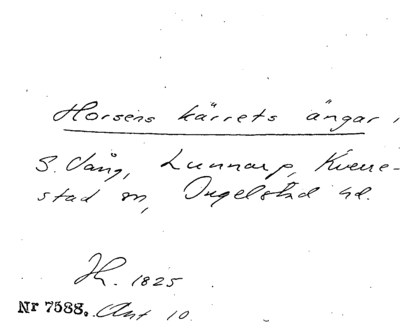 Horsens kärrets ängar i
S. Vång, Lunnarp, Kverre-
stad sn, Ingelstad hd.
H. 1825
Nr 7588. Ant 10